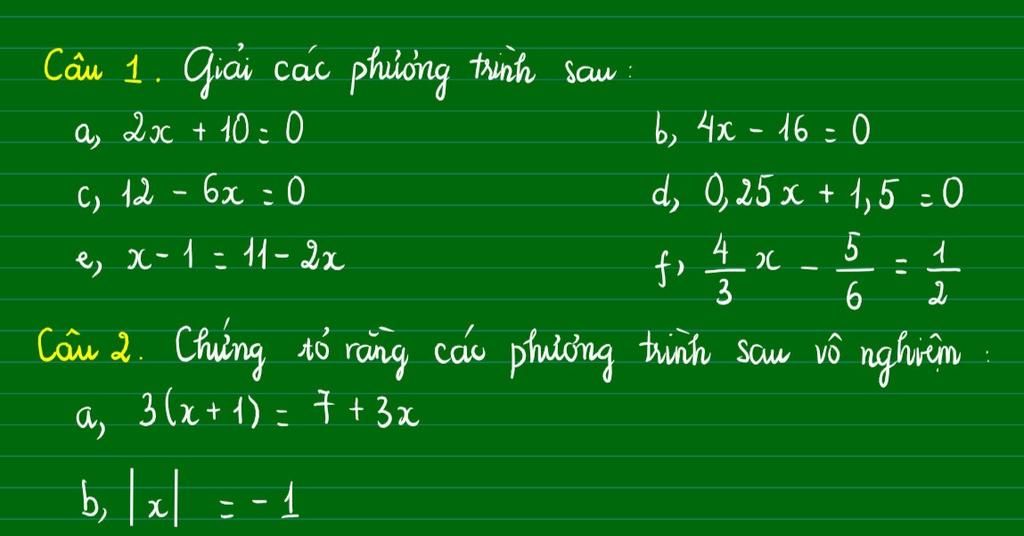 Câu 1. Giải các phương trình sau:
a, 2x + 10 = 0 b, 4x - 16 = 0
c, 12 - 6x = 0 d, 0,25x + 1,5 = 0
e, x - 1 = 11 - 2x f, 4/3 x - 5/6 = 1/2
Câu 2. Chứng tỏ rằng các phương trình sau vô nghiệm:
a, 3(x + 1) = 7 + 3x
b, |x| = -1